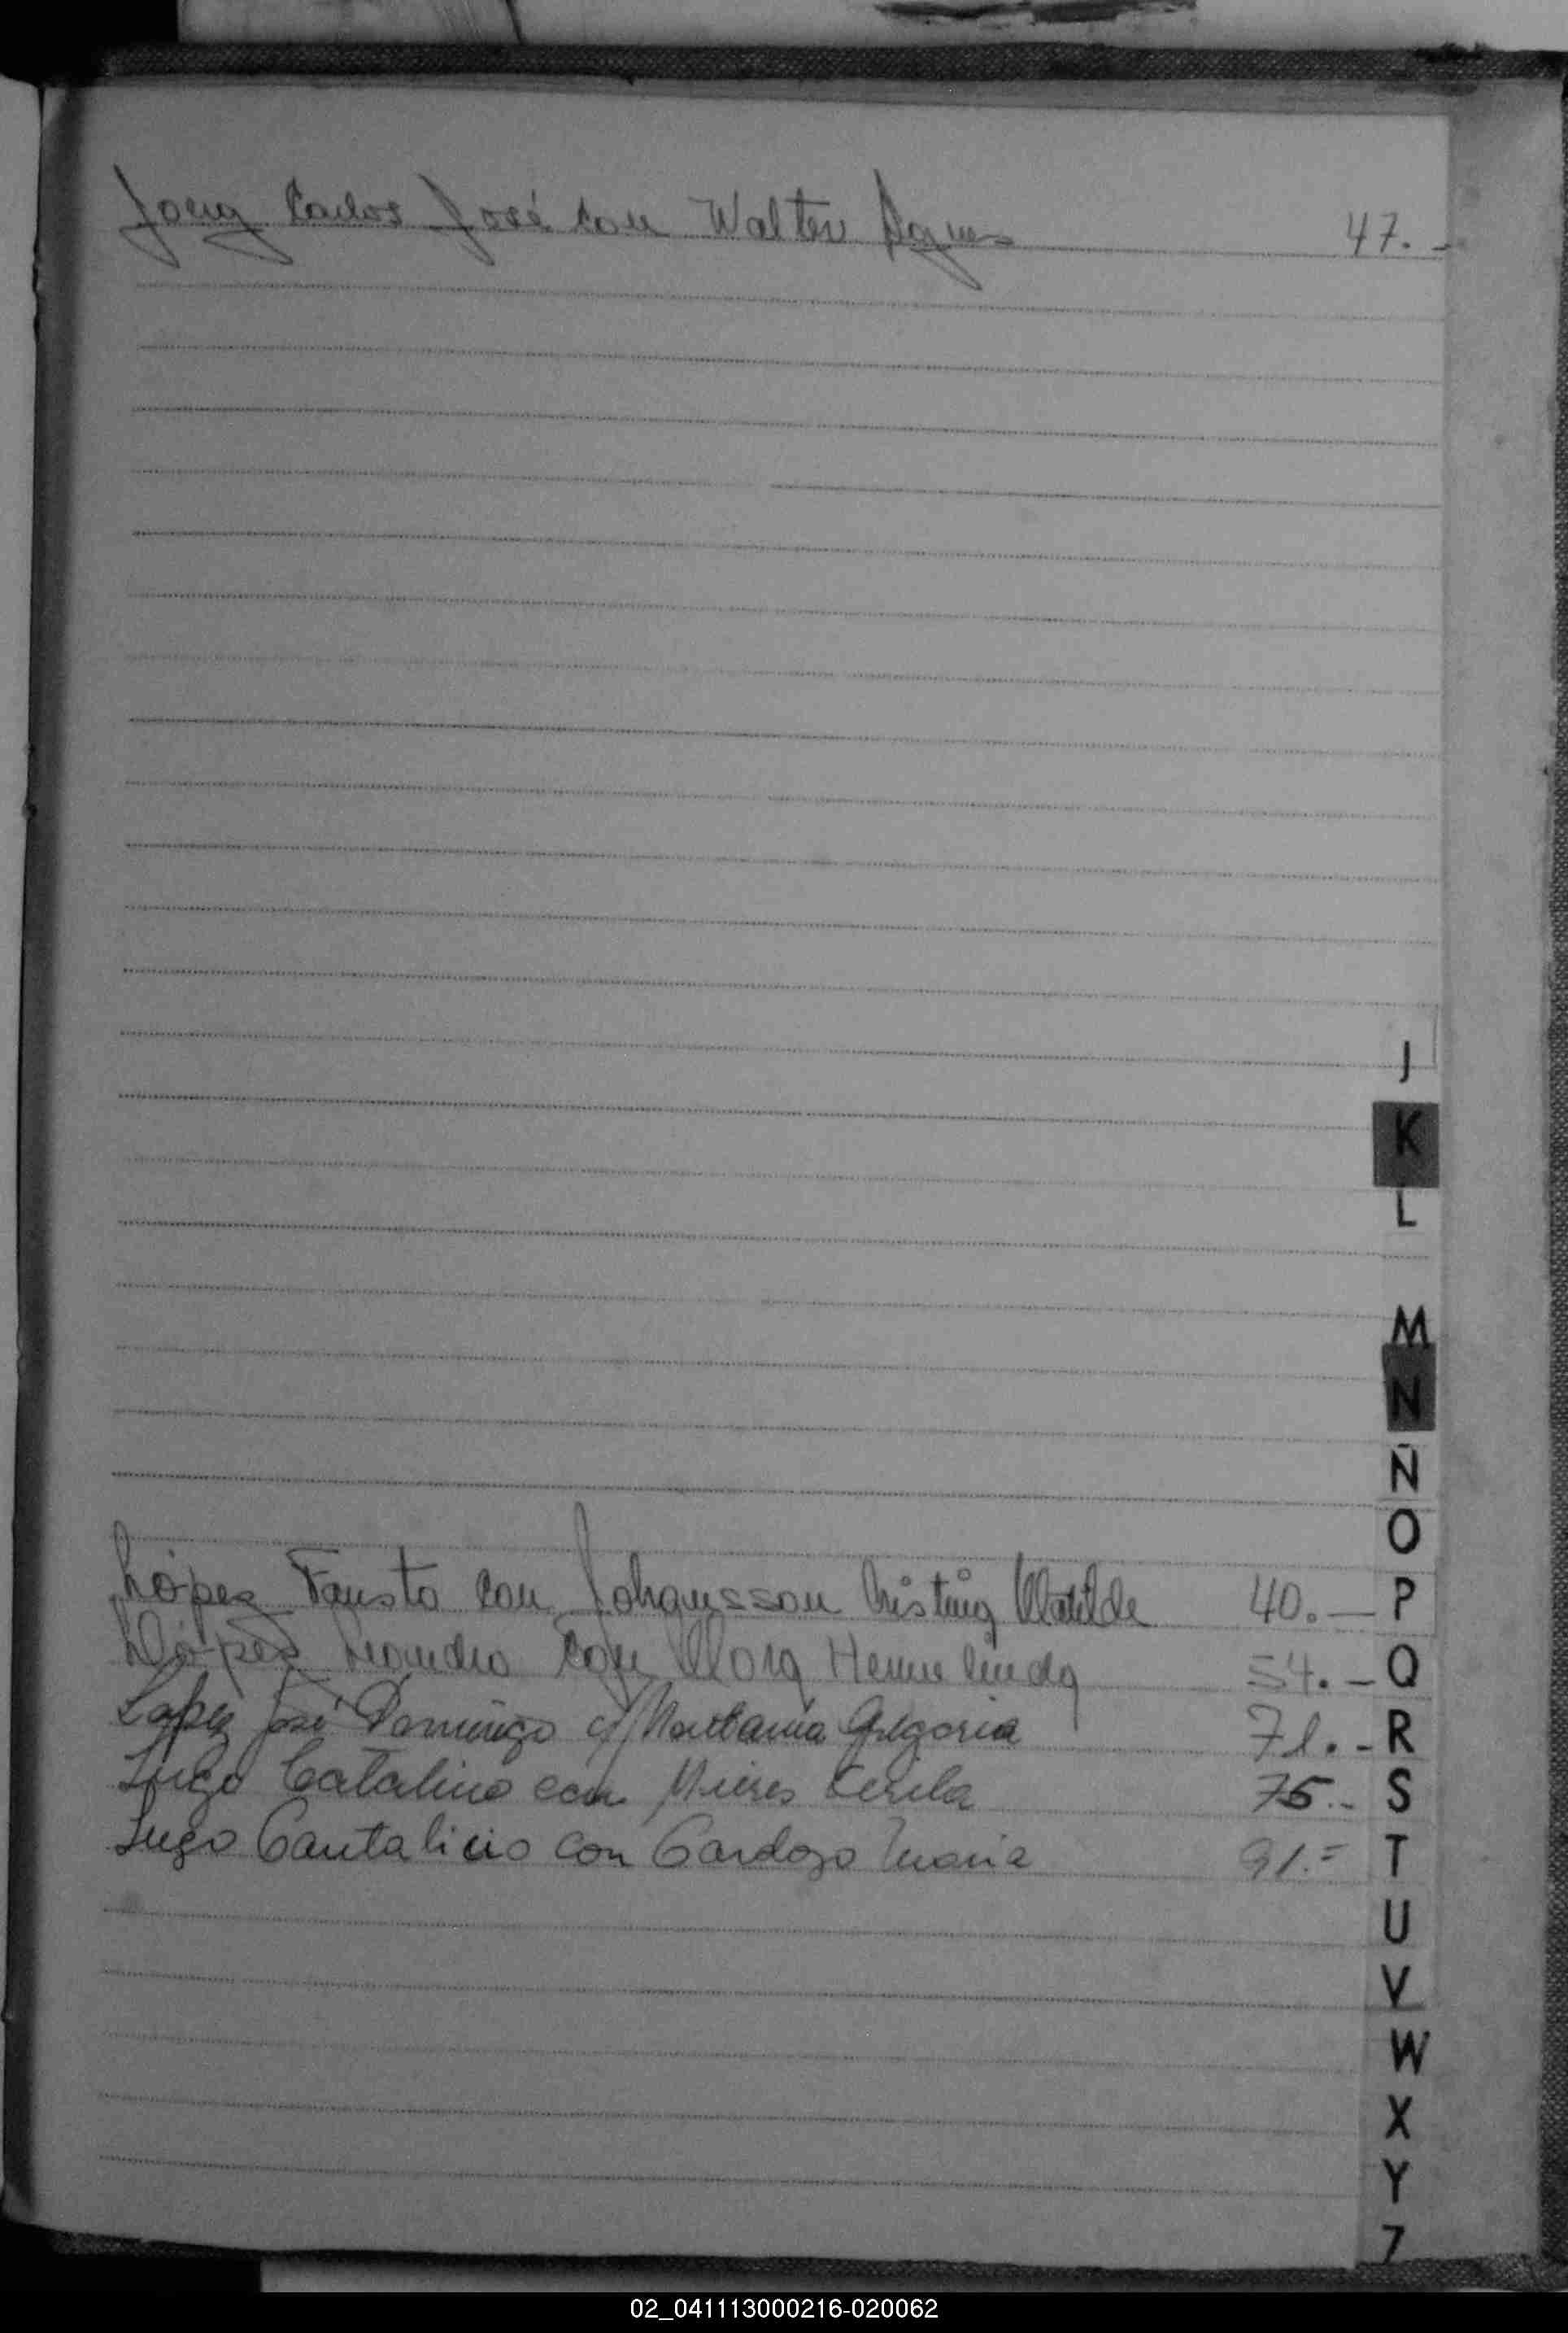 Carlos José con Walter Agnes 47.-
J
K
L
M
N
Ñ
O
López Fausto con Johansson Cristina Matilde 40.— P
López Leandro con Mora Hermelinda 54.- Q
Lopez José Domingo c/ Gregoria 71.- R
Lugo Catalino con Mieres 75.- S
Lugo Cantalicio con Cardozo Maria 91.= T
U
V
W
X
Y
Z
02_041113000216-020062